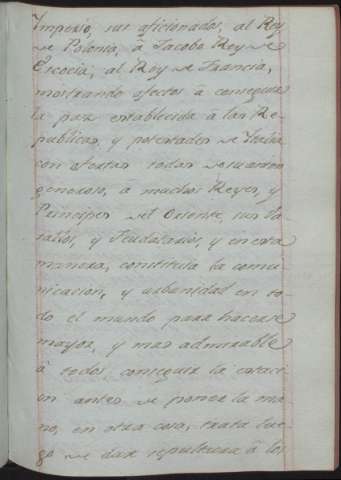 Imperio, sus aficionados, al Rey
de Polonia, â Jacobo Rey de
Escocia, al Rey de Francia,
mostrando afectos â conseguir
la paz establecida â las Re-
publicas, y potentados de Italia
con ofertas todas de su animo
generoso, â muchos Reyes, y
Principes del Oriente, sus Va-
sallos, y Feudatarios, y en esta
manera, constituía la comu-
nicacion, y urbanidad en to-
do el mundo para hacerse
mayor, y mas admirable
â todos, conseguia la
en antes de poner la ma-
no, en otra cosa, trata lue-
go de dar sepultura â los